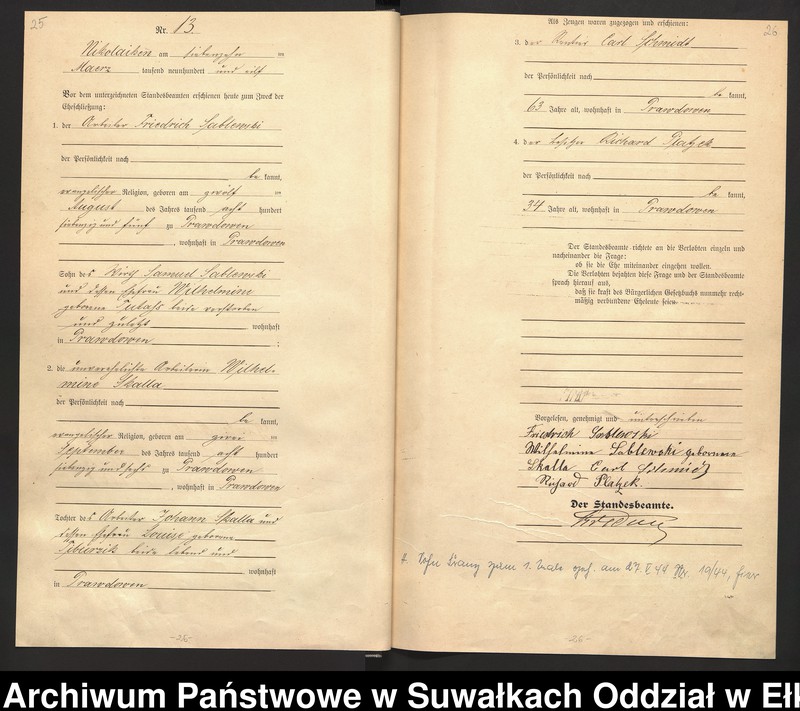 25
Nr. 13.
Nikolaiken am siebenzehn ten
Maerz tausend neunhundert und elf
Vor dem unterzeichneten Standesbeamten erschienen heute zum Zweck der
Eheschließung:
1. der Arbeiter Friedrich Sablewski
der Persönlichkeit nach
be kannt,
evangelischer Religion, geboren am zwölf ten
August des Jahres tausend acht hundert
siebenzig und fünf zu Prawdowen
, wohnhaft in Prawdowen
Sohn des Wirth Samuel Sablewski
und dessen Ehefrau Wilhelmine
geborene beide verstorben
und zuletzt wohnhaft
in Prawdowen ;
2. die unverehelichte Arbeiterin Wilhel-
mine Skalla
der Persönlichkeit nach
be kannt,
evangelischer Religion, geboren am zwei ten
September des Jahres tausend acht hundert
siebenzig und sechs zu Prawdowen
, wohnhaft in Prawdowen
Tochter des Arbeiter Johann Skalla und
dessen Ehefrau Louise geborene
beide lebend und
wohnhaft
in Prawdowen
-25-
26
Als Zeugen waren zugezogen und erschienen:
3. der Rentier Carl Schmidt
der Persönlichkeit nach
be kannt,
63 Jahre alt, wohnhaft in Prawdowen
4. der Besitzer Richard Platzek
der Persönlichkeit nach
be kannt,
34 Jahre alt, wohnhaft in Prawdowen
Der Standesbeamte richtete an die Verlobten einzeln und
nacheinander die Frage:
ob sie die Ehe miteinander eingehen wollen.
Die Verlobten bejahten diese Frage und der Standesbeamte
sprach hierauf aus,
daß sie kraft des Bürgerlichen Gesetzbuchs nunmehr recht-
mäßig verbundene Eheleute seien.
Vorgelesen, genehmigt und unterschrieben
Friedrich Sablewski
Wilhelmine Sablewski geborene
Skalla Carl Schmidt
Richard Platzek
Der Standesbeamte.
Sohn Franz zum 1. Male am 27. V. 44 Nr. 19/44, hier
-26-
Archiwum Państwowe w Suwałkach Oddział w Ełk